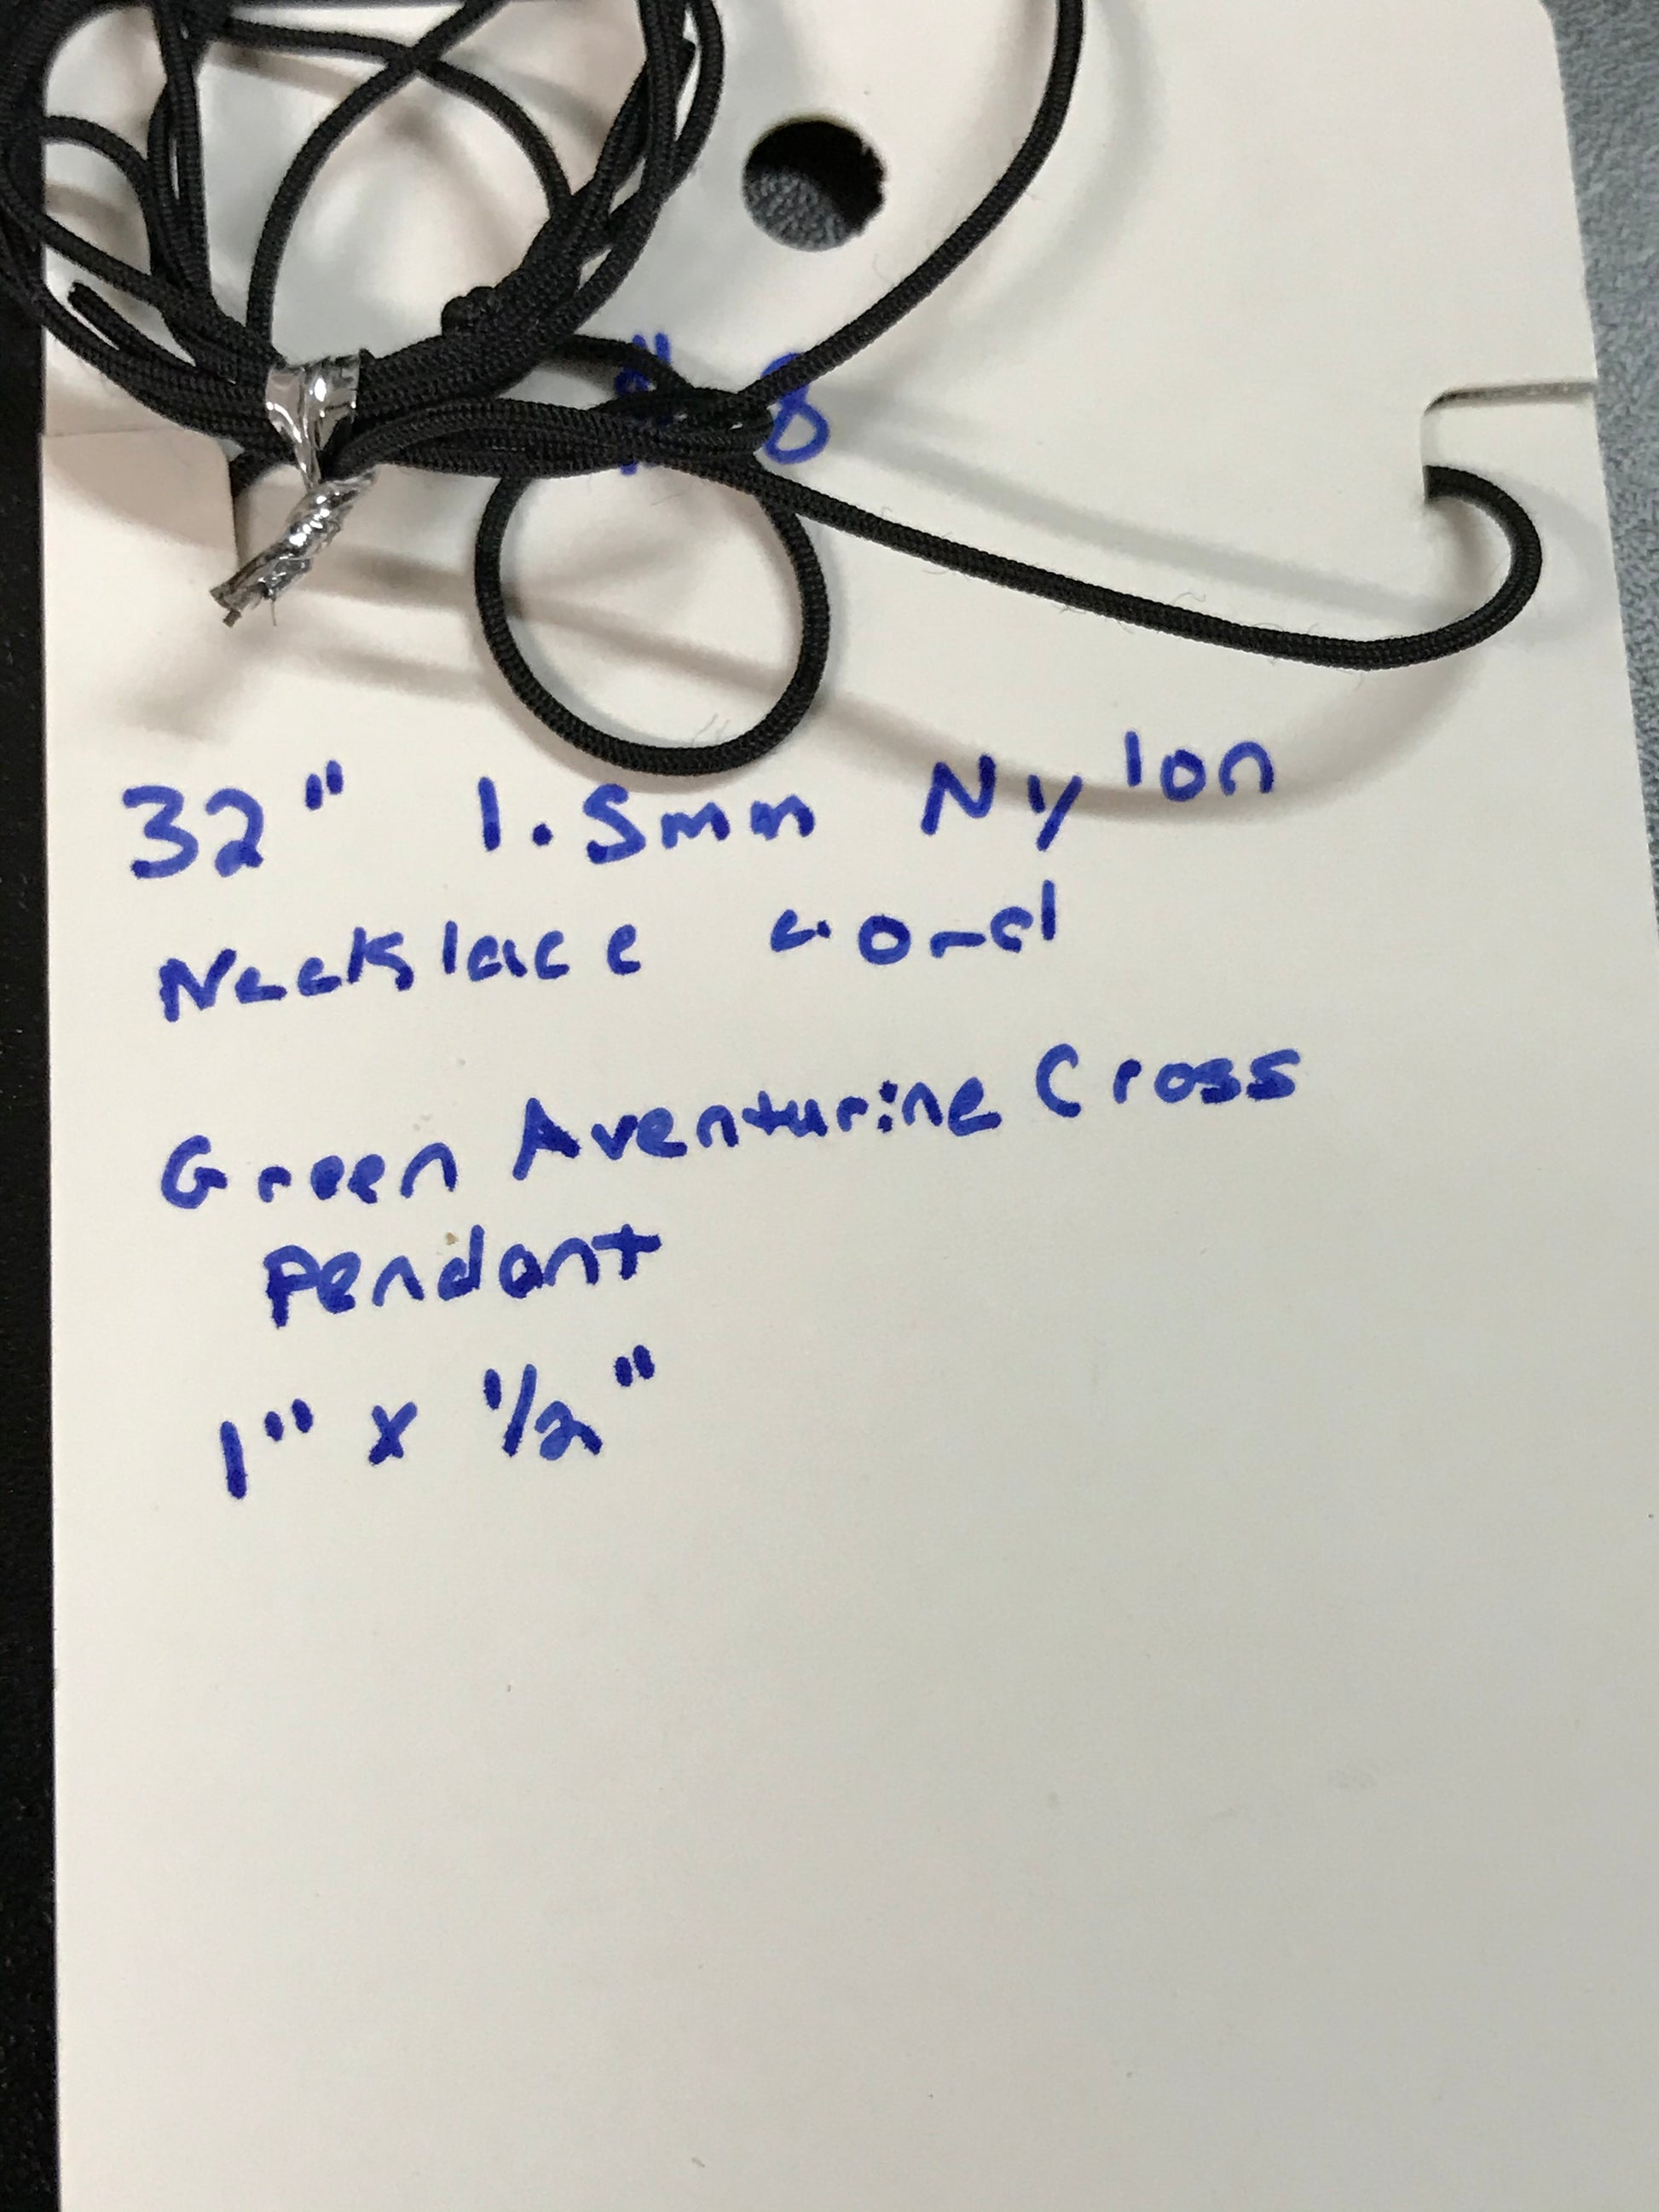 8
32" 1.5mm Nylon
Necklace cord
Green Aventurine Cross
Pendant
1" x 1/2"